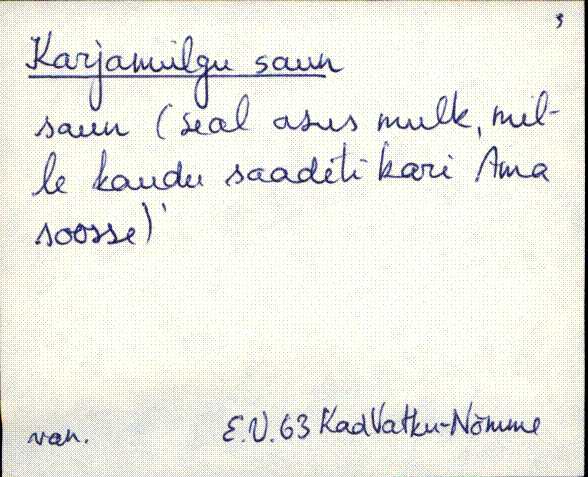 Karjamulgu saun
saun (seal asus mulk, mil-
le kaudu saadeti kari Ama
soosse)
van.
E.V. 63 Kad Vatku-Nõmme